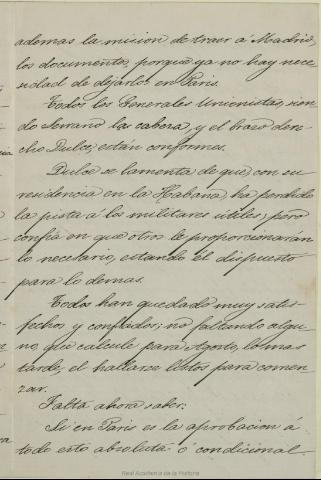 ademas la mision de traer á Madrid,
los documentos, porque ya no hay nece-
sidad de dejarlos en Paris.
Todos los Generales Unionistas, sien-
do Serrano la cabeza, y el brazo dere-
cho Dulce; están conformes.
Dulce se lamenta de que, con su
residencia en la Habana, ha perdido
la pista á los militares útiles; pero
confia en que otros le proporcionarán
lo necesario, estando él dispuesto
para lo demas.
Todos han quedado muy satis-
fechos y confiados; no faltando algu-
no, que calcule para Agosto, lo mas
tarde, el hallarse listos para comen-
zar.
Falta ahora saber:
Si en Paris es la aprobacion á
todo esto absoluta ó condicional.
Real Academia de la Historia